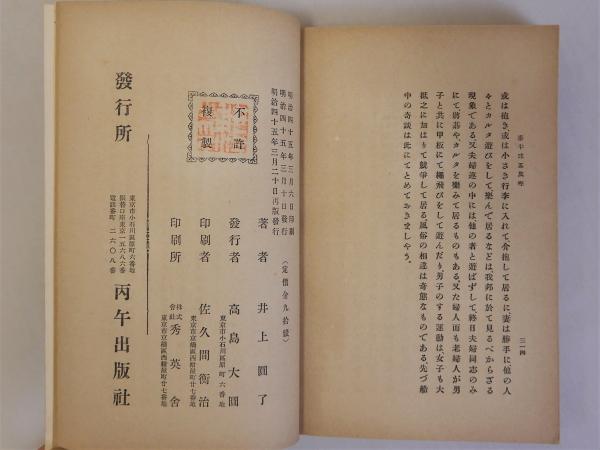 南半球五萬哩
三一四
或は抱き、或は小さき行李に入れて介抱して居るに、妻は勝手に他の人
々とカルタ遊びをして樂んで居るなどは、我邦に於て見るべからざる
現象である、又夫婦連の中には他の者と遊ばずして、終日夫婦同志のみ
にて、將棊やカルタを樂みて居るものもある、又た婦人而も老婦人が男
子と共に甲板にて繩飛びをして遊んだり、男子のする運動は女子も大
抵之に加はりて競爭して居る、風俗の相違は奇態なものである、先づ船
中の奇談は此にてとめておきましやう。
明治四十五年三月六日印刷
明治四十五年三月十日發行
明治四十五年三月二十日再版發行
（定價金九拾錢）
不許
複製
著者 井上圓了
東京市小石川區原町六番地
發行者 高島大圓
東京市京橋區西紺屋町廿七番地
印刷者 佐久間衡治
東京市京橋區西紺屋町廿七番地
印刷所 株式會社 秀英舍
發行所
東京市小石川區原町六番地
振替口座東京一五六八六番
電話番町二六〇八番
丙午出版社